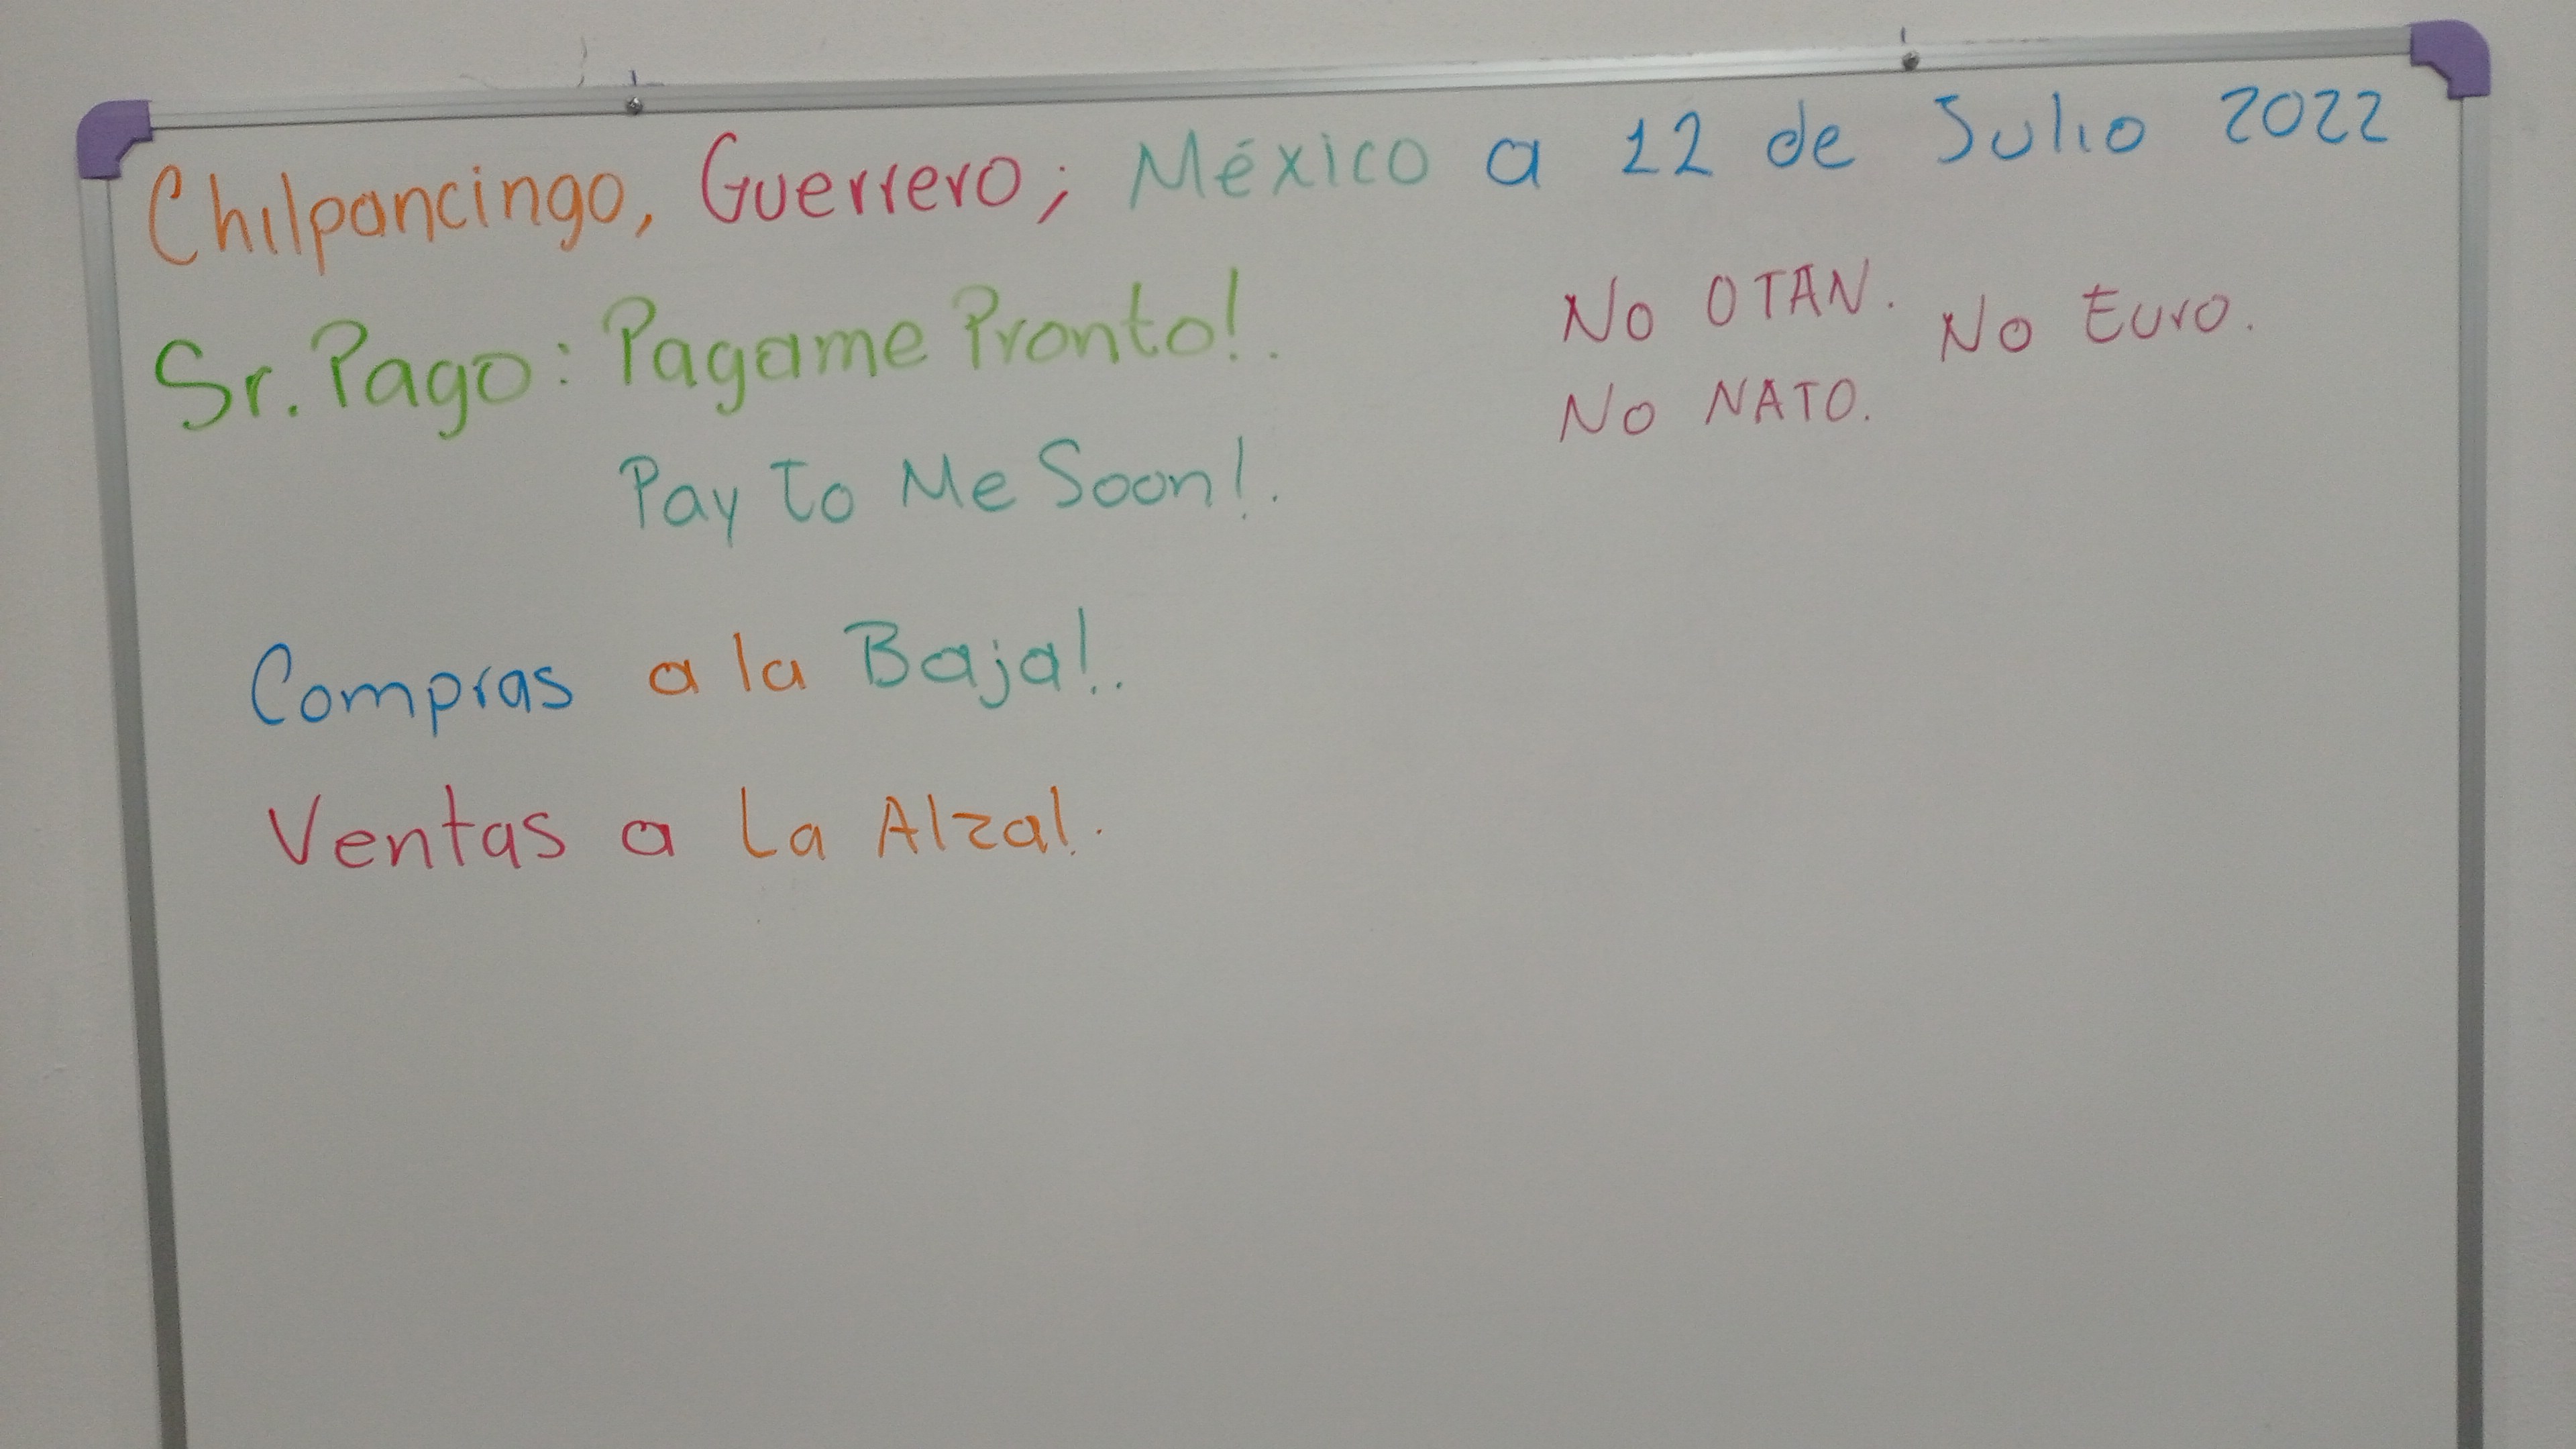 Chilpancingo, Guerrero; México a 12 de Julio 2022
Sr. Pago: Pagame Pronto!.
Pay To Me Soon!.
No OTAN. No Euro.
No NATO.
Compras a la Baja!..
Ventas a La Alza!.